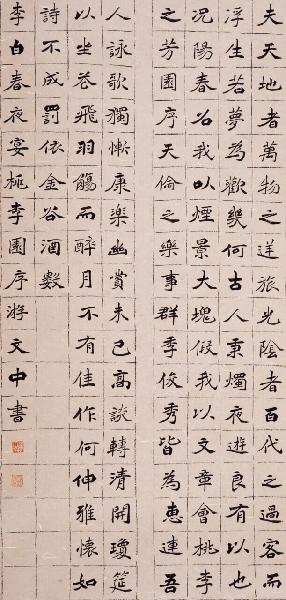 夫天地者萬物之逆旅光陰者百代之過客而
浮生若夢為歡幾何古人秉燭夜遊良有以也
況陽春召我以煙景大塊假我以文章會桃李
之芳園序天倫之樂事群季俊秀皆為惠連吾
人詠歌獨慚康樂幽賞未已高談轉清開瓊筵
以坐花飛羽觴而醉月不有佳作何伸雅懷如
詩不成罰依金谷酒數
李白春夜宴桃李園序游文中書